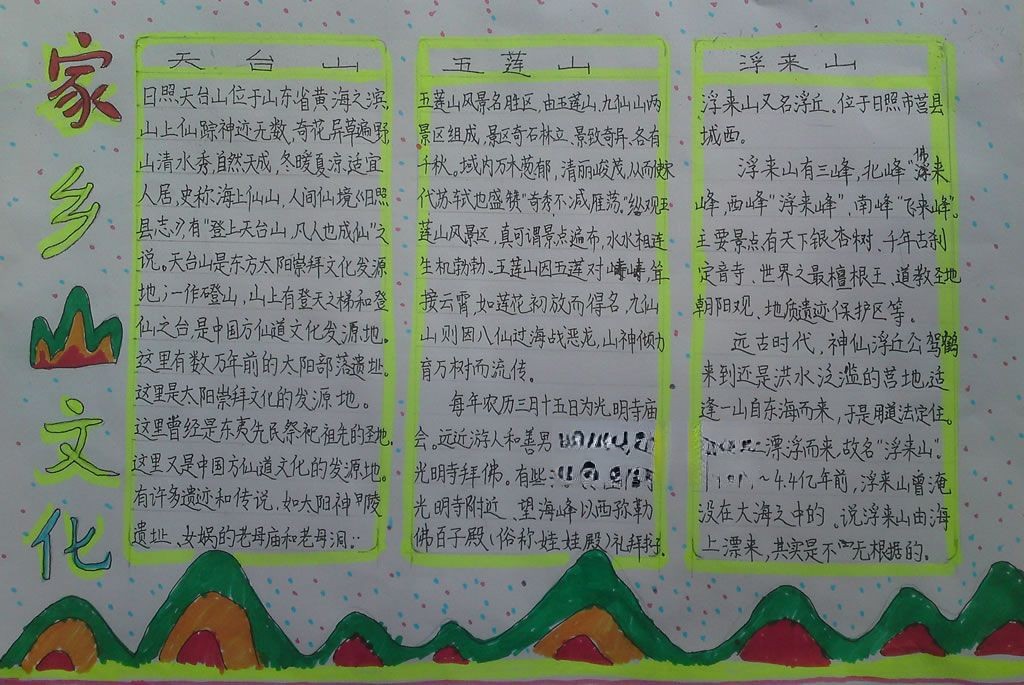 家乡文化
天台山
日照天台山位于山东省黄海之滨,
山上仙踪神迹无数,奇花异草遍野,
山清水秀,自然天成,冬暖夏凉,适宜
人居,史称海上仙山,人间仙境《日照
县志》有"登上天台山,凡人也成仙"之
说。天台山是东方太阳崇拜文化发源
地;一作磴山,山上有登天之梯和登
仙之台是中国方仙道文化发源地。
这里有数万年前的太阳部落遗址。
这里是太阳崇拜文化的发源地。
这里曾经是东夷先民祭祀祖先的圣地。
这里又是中国方仙道文化的发源地。
有许多遗迹和传说,如太阳神 陵
遗址、女娲的老母庙和老母洞:
五莲山
五莲山风景名胜区,由五莲山,九仙山两
景区组成,景区奇石林立、景致奇异、各有
千秋。域内万木葱郁,清丽峻茂,从而使宋
代苏轼也盛赞"奇秀不减雁荡。"纵观五
莲山风景区,真可谓景点遍布,水水相连
生机勃勃、五莲山因五莲对峙,耸
接云霄,如莲花初放而得名,九仙
山则因八仙过海战恶龙,山神倾力
育万树而流传。
每年农历三月十五日为光明寺庙
会。远近游人和善男
光明寺拜佛。有些
光明寺附近 望海峰以西弥勒
佛百子殿(俗称娃娃殿)礼拜
浮来山
浮来山又名浮丘。位于日照市莒县
城西。
浮来山有三峰,北峰"佛来
峰,西峰"浮来峰"、南峰"飞来峰"。
主要景点有天下银杏树、千年古刹
定音寺、世界之最檀根王、道教圣地
朝阳观、地质遗迹保护区等。
远古时代,神仙浮丘公驾鹤
来到还是洪水泛滥的营地,适
逢一山自东海而来,于是用道法定住。
漂浮而来,故名"浮来山"。
~4.4亿年前,浮来山曾淹
没在大海之中的。说浮来山由海
上漂来,其实是不 无根据的。